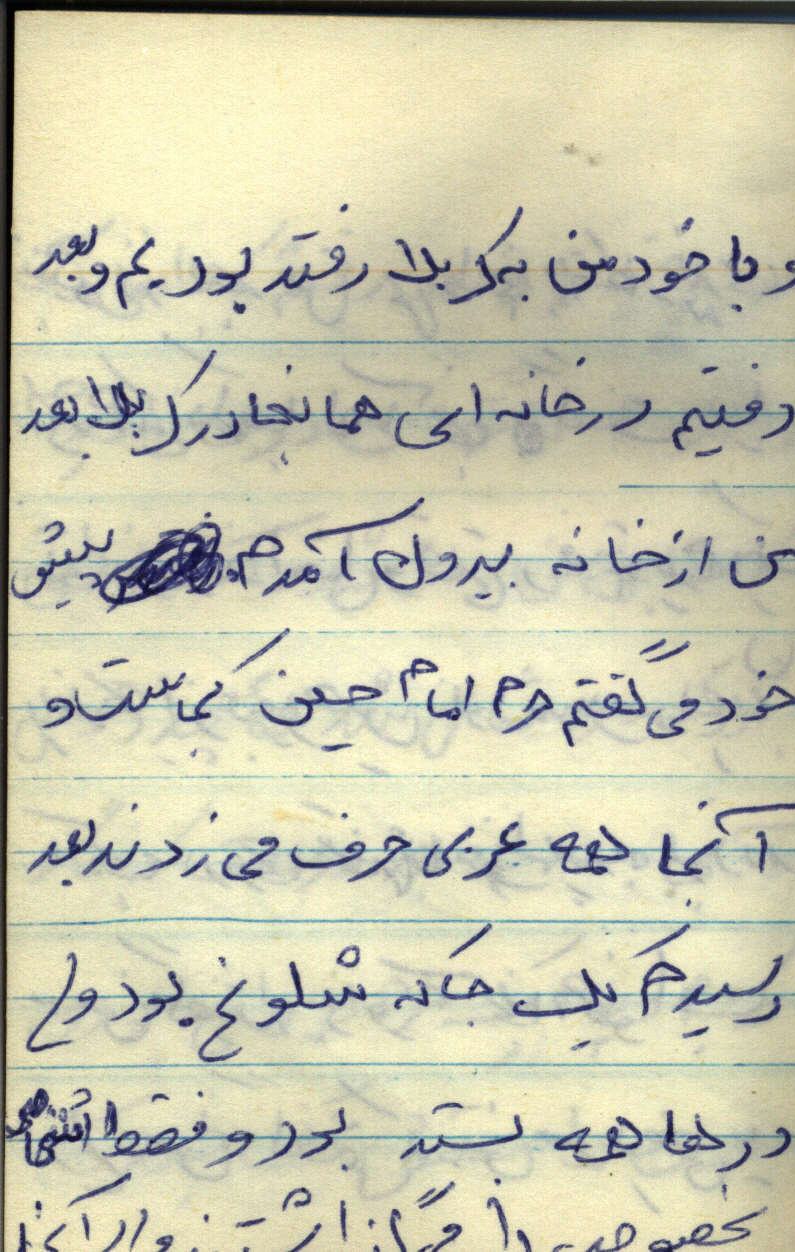 و با خودمن به کربلا رفته بودیم و بعد
رفتیم در خانه ای همانجا در کربلا بعد
من از خانه بیرون آمدم پیش
خود می گفتم حرم امام حسین کجاست و
آنجا همه عربی حرف می زدند بعد
رسیدم یک جا که شلوغ بود و
در ها همه بسته بود و فقط
بخصوصی را می گذاشتند وارد